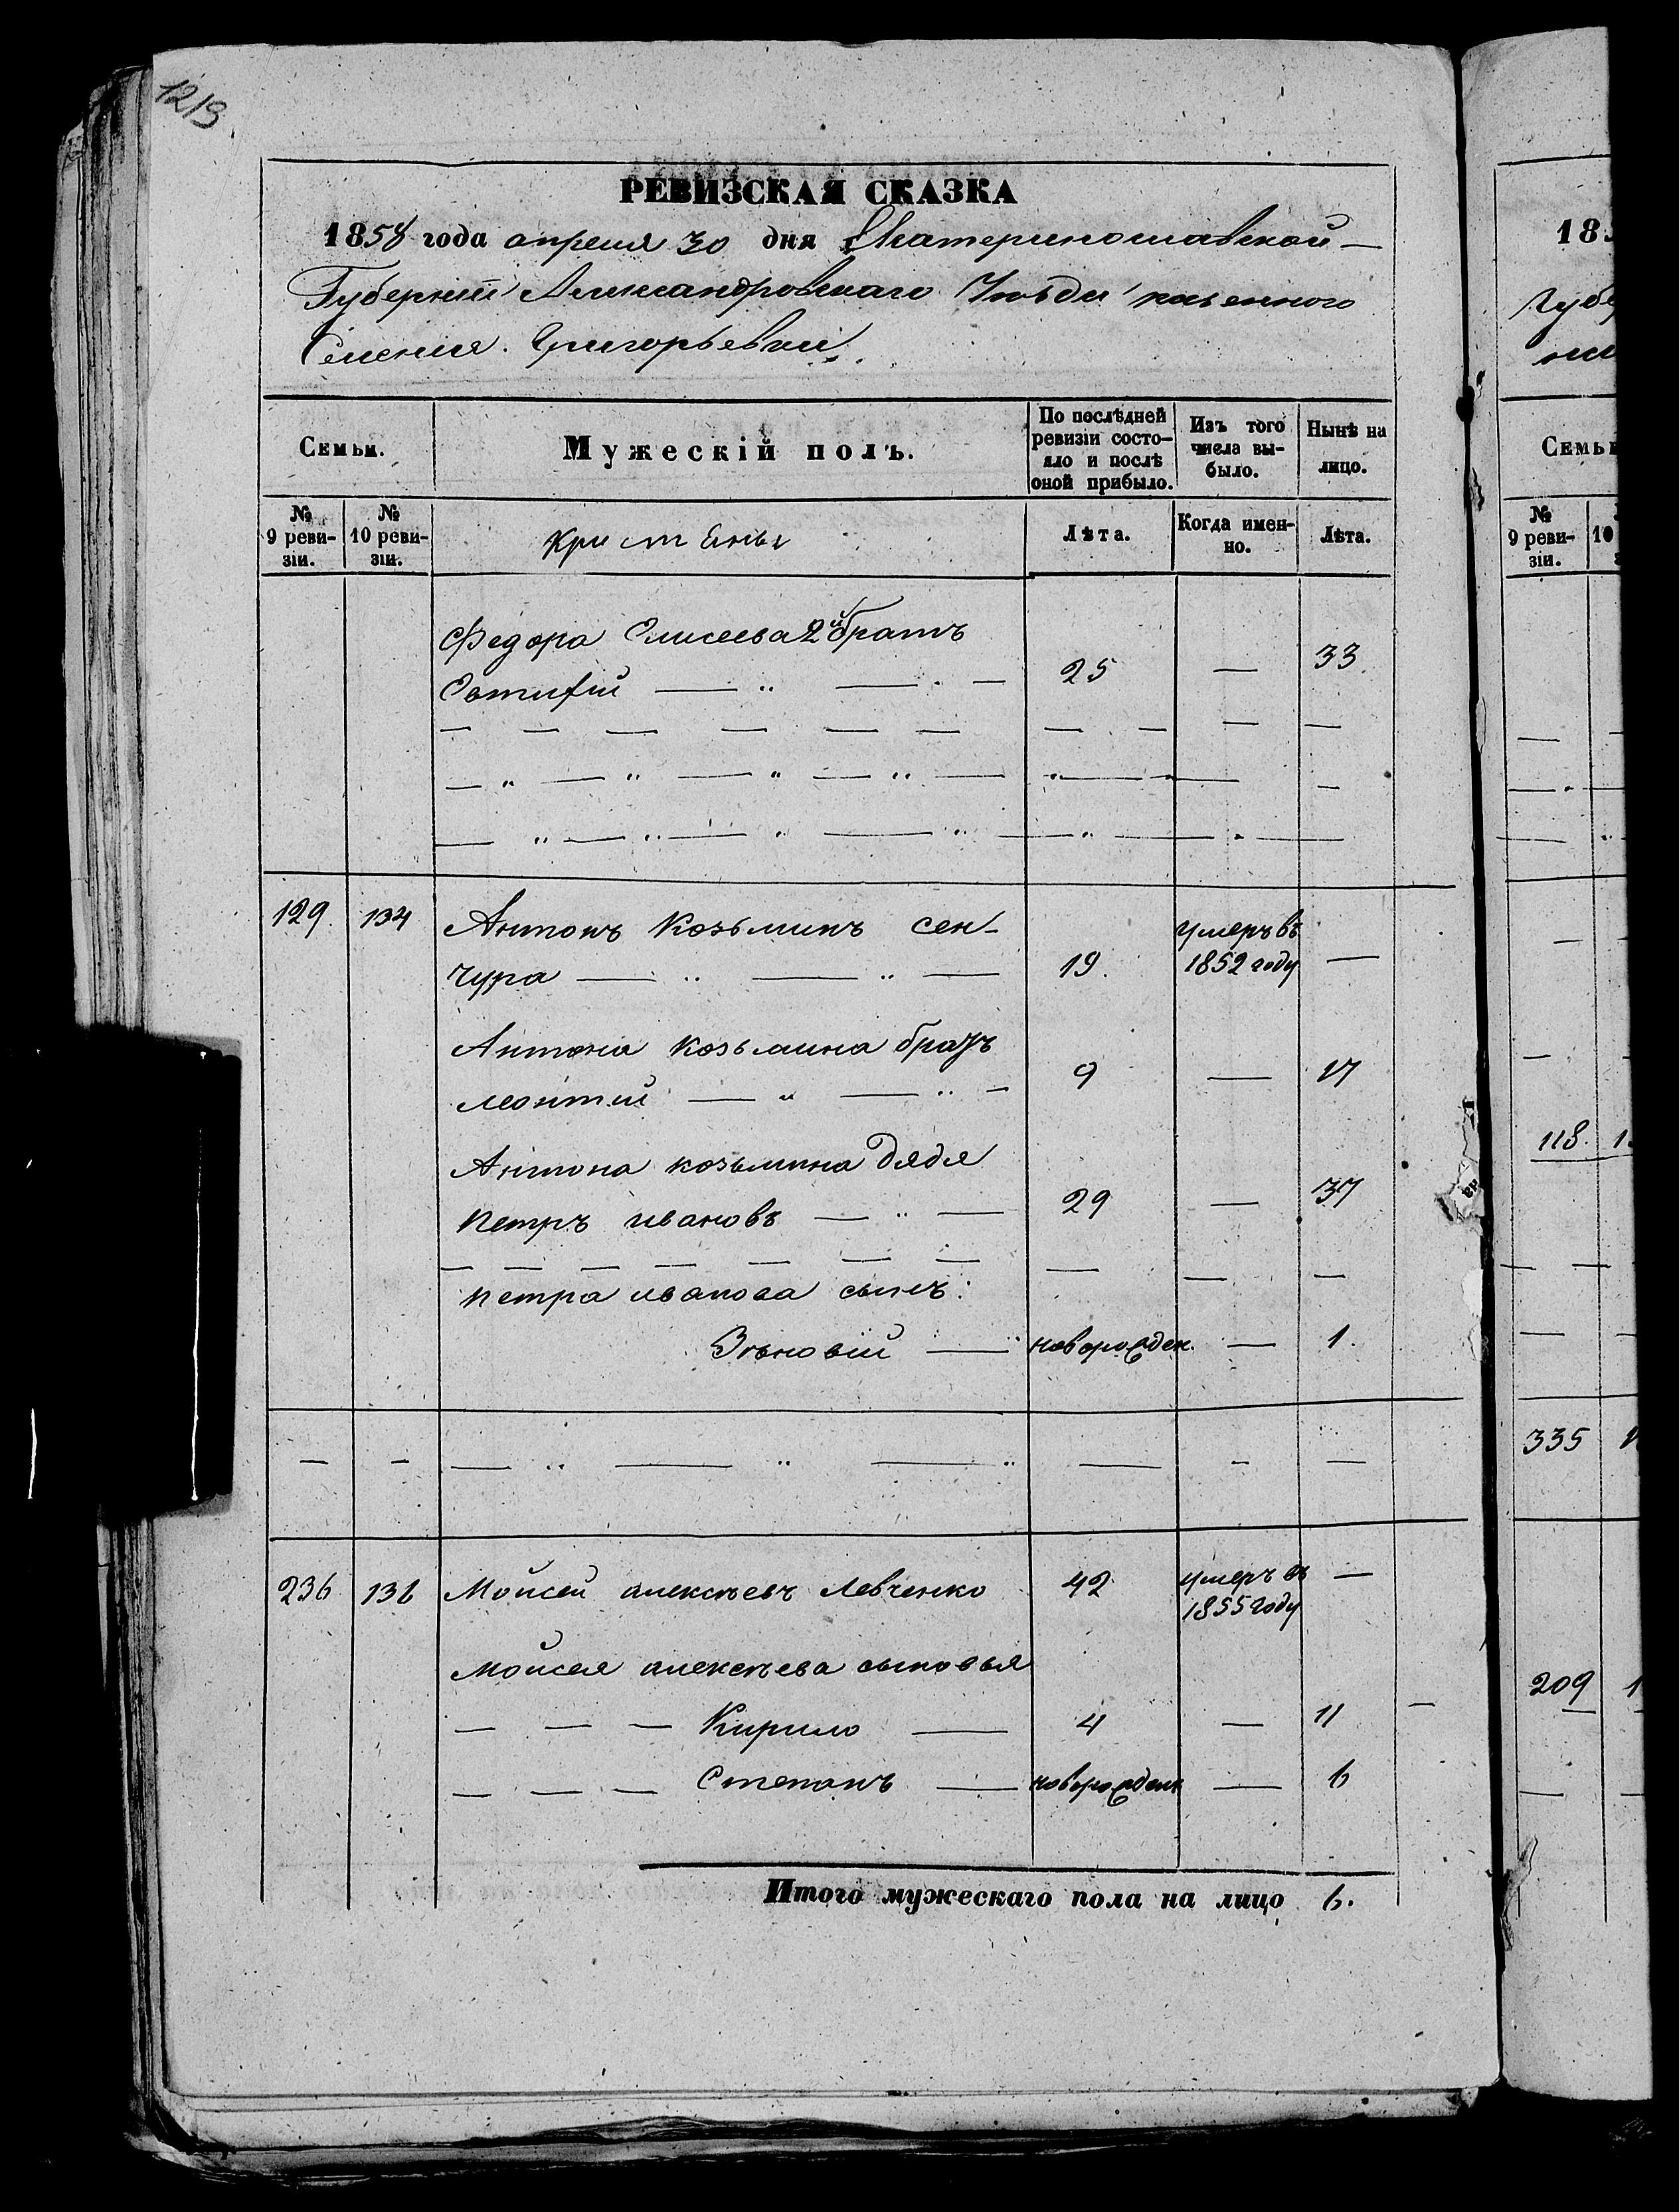 1213.
РЕВИЗСКАЯ СКАЗКА
1858 года апреля 30 дня Екатеринославской
Губернии Александровскаго Уѣзда казенного
Селения. Григорьевки.
Семьи.
Мужескій полъ.
По послѣдней ревизіи состо-
яло и послѣ оной прибыло.
Изъ того числа вы-
было.
Нынѣ на лицо.
№ 9 реви-
зіи.
№ 10 реви-
зіи.
Лѣта.
Когда имен-
но.
Лѣта.
Федора Елисеева 2й братъ
25 — 33
129. 134 Антонъ Козьминъ Сен-
чура 19. умеръ въ 1852 году —
Антона Козьмина братъ
Леонтий 9 — 17
Антона Козьмина дядя
Петръ Ивановъ 29 — 37
Петра Иванова сынъ:
Зѣновій новорожден. — 1.
236 136 Мойсей Алексѣевъ Левченко 42 умеръ въ 1855 году —
Моисея Алексѣева сыновья
Кирило 4 — 11
Степанъ новорожден — 6
Итого мужескаго пола на лицо 6.
Губе
Семьи
№ 9 реви-
зіи.
118.
335
209